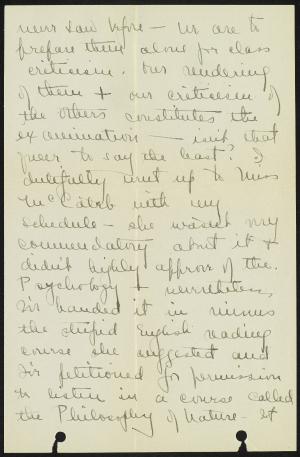 never saw before — We are to
prepare them alone for class
criticism. Our rendering
of them & our criticism of
the others constitutes the
examination — isn't that
queer, to say the least? I
dutifully went up to Miss
McCaleb with my
schedule — she wasn't very
commendatory about it &
didn't highly approve of the
Psychology & nevertheless,
I've handed it in minus
the stupid English reading
course she suggested and
I've petitioned for permission
to listen in a course called
the Philosophy of Nature — It